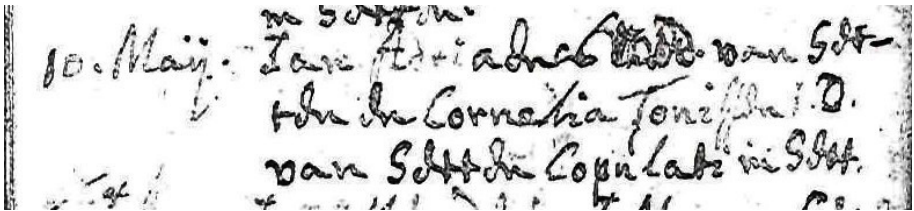 in Setten.
10. Maij. Jan Adriaens van Set-
ten en Cornelia Tonissen J.D.
van Setten Copulati in Sett.